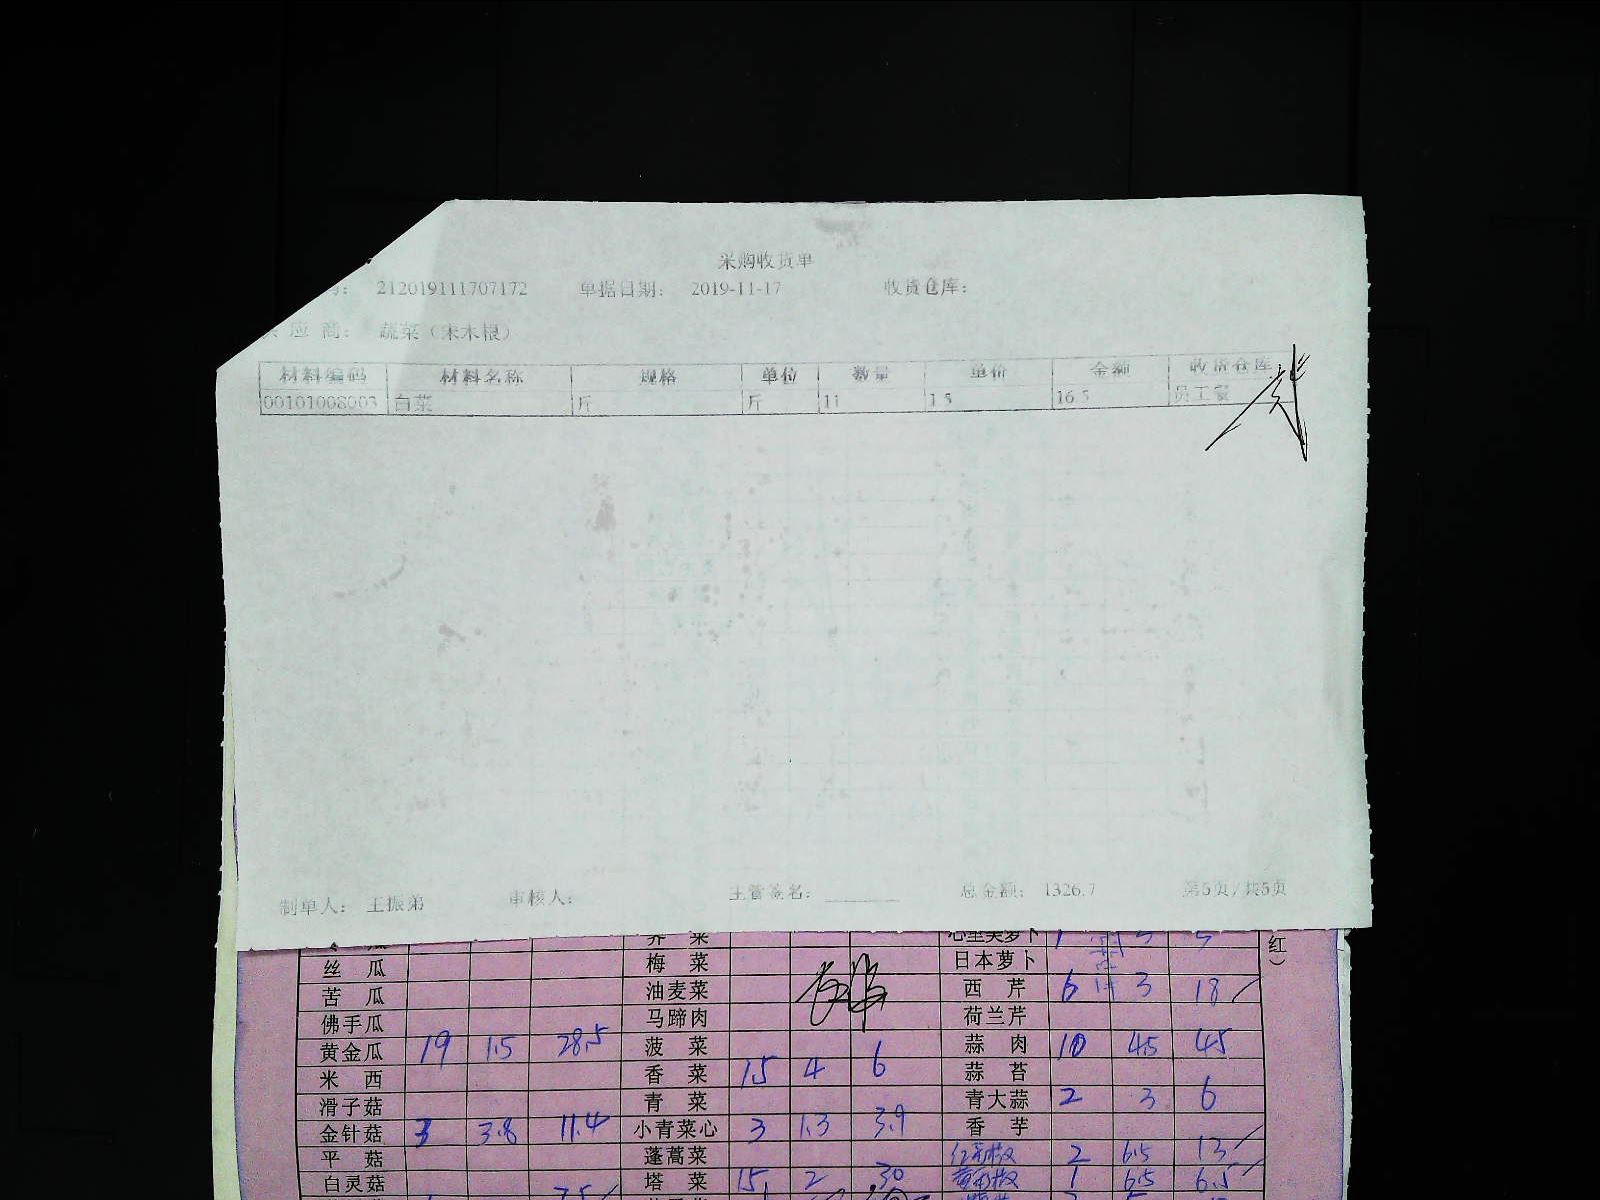 采购收货单
号： 212019111707172 单据日期： 2019-11-17 收货仓库：
供 应 商： 蔬菜（宋木根）
材料编码 材料名称 规格 单位 数量 单价 金额 收货仓库
00101008003 白菜 斤 斤 11 1.5 16.5 员工餐
制单人： 王振弟 审核人： 主管签名： 总金额： 1326.7 第5页/共5页
瓜 荠 菜 心里美萝卜 1 5 5 红）
丝 瓜 梅 菜 日本萝卜
苦 瓜 油麦菜 西 芹 6 3 18
佛手瓜 马蹄肉 荷兰芹
黄金瓜 19 1.5 28.5 菠 菜 蒜 肉 10 4.5 45
米 西 香 菜 1.5 4 6 蒜 苔
滑子菇 青 菜 青大蒜 2 3 6
金针菇 3 3.8 11.4 小青菜心 3 1.3 3.9 香 芋
平 菇 蓬蒿菜 2 6.5 13
白灵菇 塔 菜 15 2 30 1 6.5 6.5